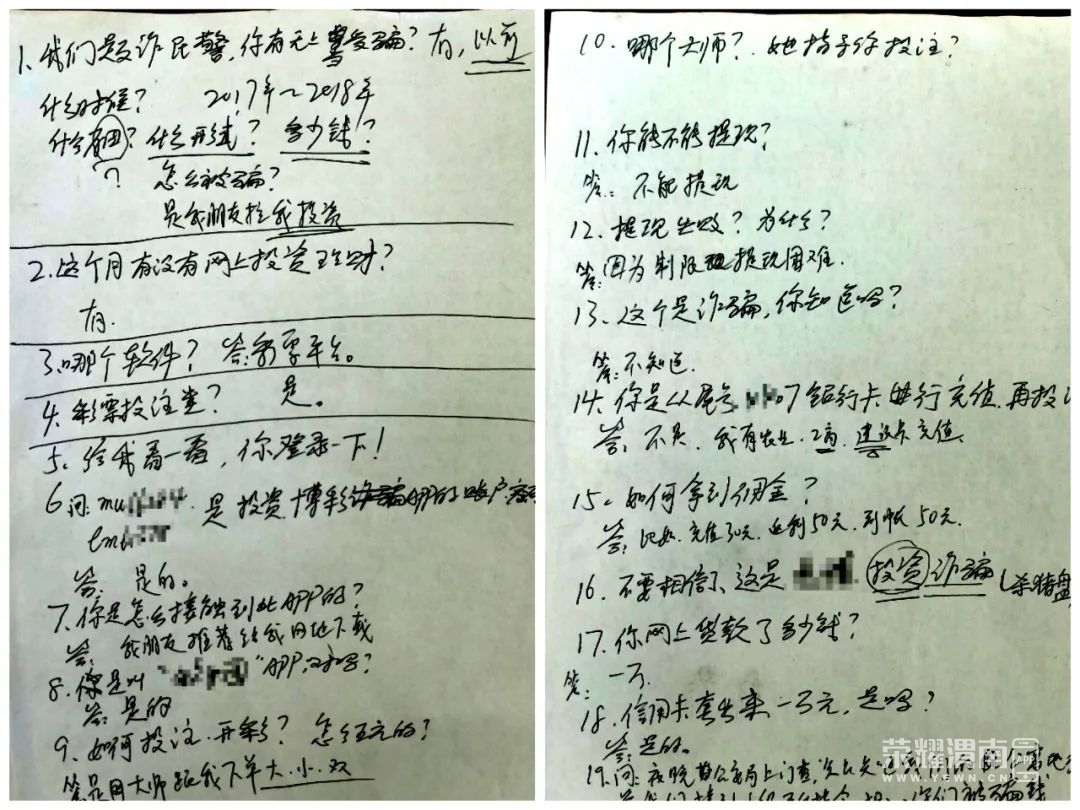 1、我们是反诈民警,你有无上当受骗?有,以前
什么时候? 2017年~2018年
什么原因?什么形式?多少钱?
?
怎么被骗?
是我朋友拉我投资
2.这个月有没有网上投资理财?
有.
3.哪个软件? 答:彩票平台。
4.彩票投注类? 是。
5、给我看一看,你登录一下!
6问: 是投资博彩 APP的账户
答: 是的。
7.你是怎么接触到此APP的?
答: 我朋友推荐给我 下载
8.你是叫“ ”APP,对吗?
答:是的
9.如何投注.开彩? 怎么玩的?
答是用大师跟我下单大.小.双
10.哪个大师? 她指导你投注?
11.你能不能提现?
答:不能提现
12.提现失败?为什么?
答:因为制限 提现困难.
13.这个是诈骗,你知道吗?
答:不知道.
14.你是从尾号 7银行卡进行充值.再投
答:不是.我有农业.工商.建设卡充值.
15.如何拿到佣金?
答:比如.充值30元.返利50元.到帐50元.
16.不要相信了,这是 投资诈骗(杀猪盘
17.你网上贷款了多少钱?
答:一万.
18.信用卡套出来一万元,是吗?
答:是的。
19.问:
荣耀渭南
APP
WWW.YSWN.CN